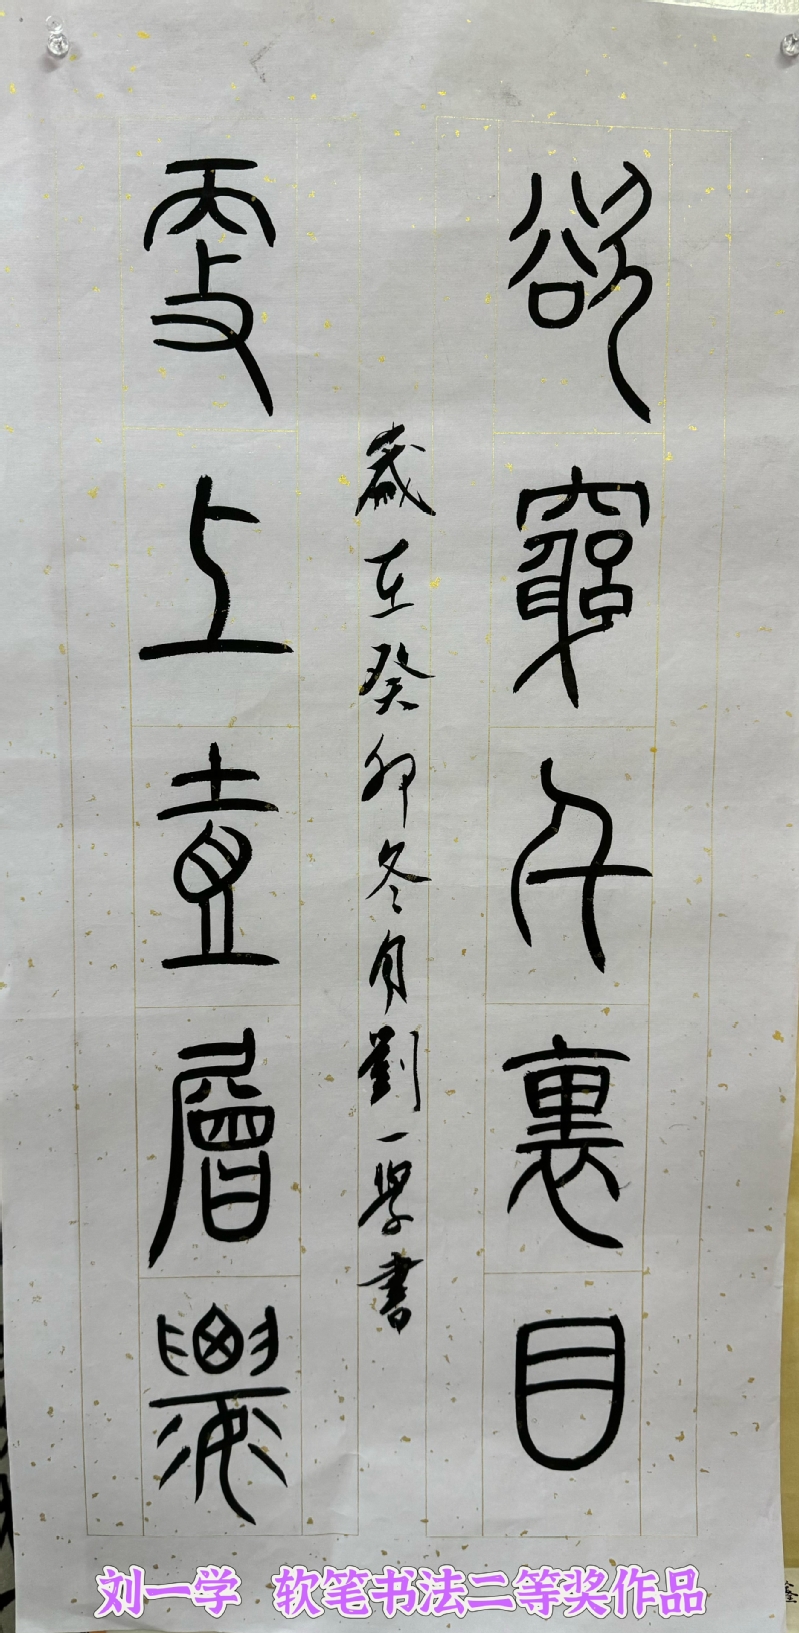 欲窮千里目
更上壹層樓
歲在癸卯冬月劉一學書
刘一学 软笔书法二等奖作品